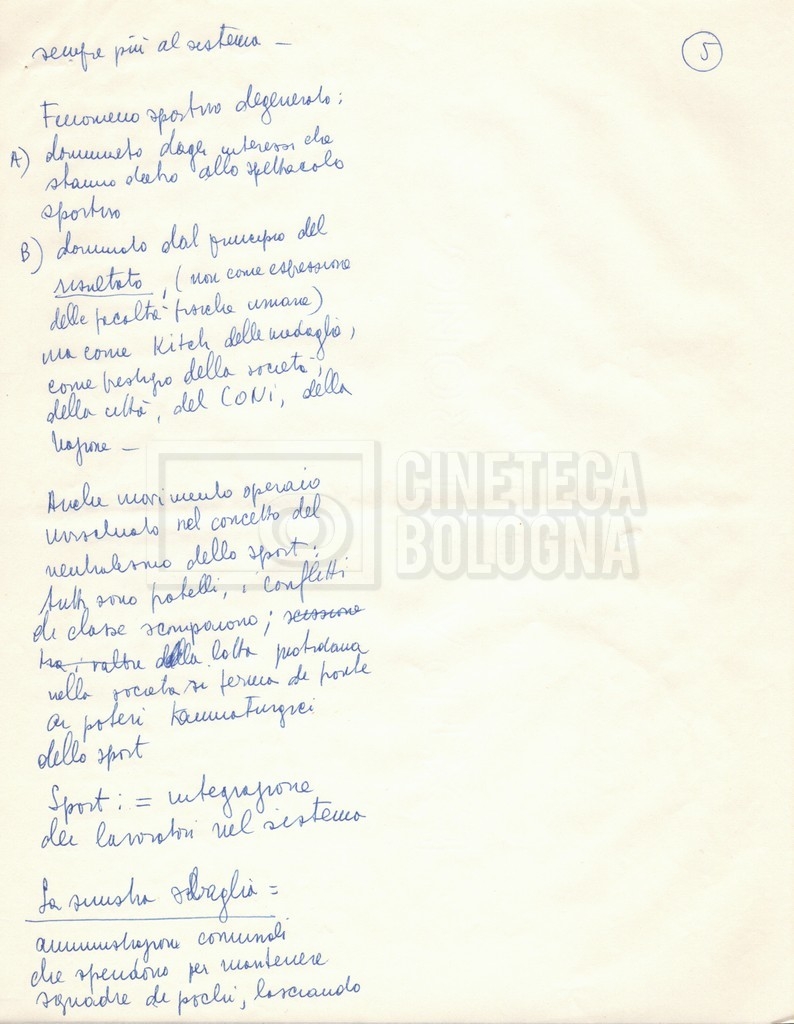 sempre più al sistema –
5
Fenomeno sportivo degenerato:
A) dominato dagli interessi che
stanno dietro allo spettacolo
sportivo
B) dominato dal principio del
risultato, (non come espressione
delle facoltà fisiche umane)
ma come Kitch delle medaglie,
come prestigio della società,
della città, del CONI, della
Nazione –
CINETECA
BOLOGNA
Anche movimento operaio
invischiato nel concetto del
neutralismo dello sport:
tutti sono fratelli, i conflitti
di classe scompaiono; scissione
tra i valori della lotta quotidiana
nella società si ferma di fronte
ai poteri taumaturgici
dello sport
Sport: = integrazione
dei lavoratori nel sistema
La sinistra sbaglia =
amministrazioni comunali
che spendono per mantenere
squadre di pochi, lasciando